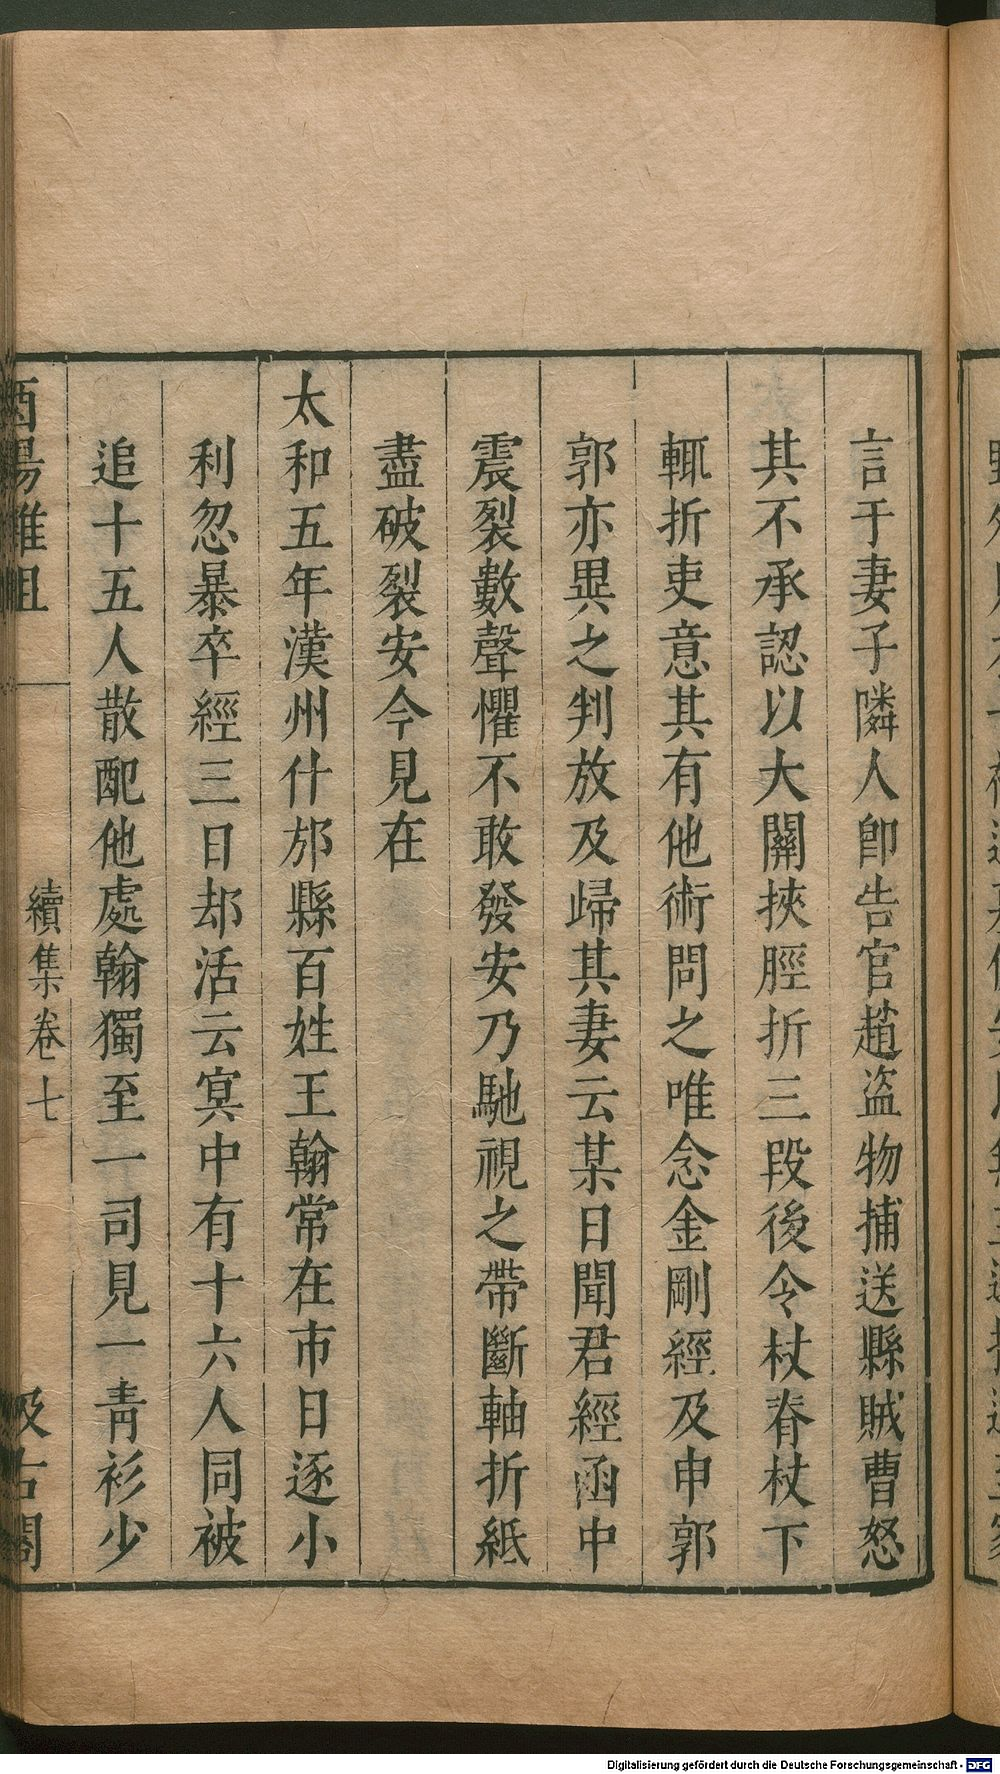 言于妻子隣人卽告官趙盜物捕送縣賊曹怒
其不承認以大關挾脛折三段後令杖脊杖下
輒折吏意其有他術問之唯念金剛經及申郭
郭亦異之判放及歸其妻云某日聞君經函中
震裂數聲懼不敢發安乃馳視之帶斷軸折紙
盡破裂安今見在
太和五年漢州什邡縣百姓王翰常在市日逐小
利忽暴卒經三日却活云冥中有十六人同被
追十五人散配他處翰獨至一司見一青衫少
酉陽雜俎 續集卷七 汲古閣
Digitalisierung gefördert durch die Deutsche Forschungsgemeinschaft - DFG